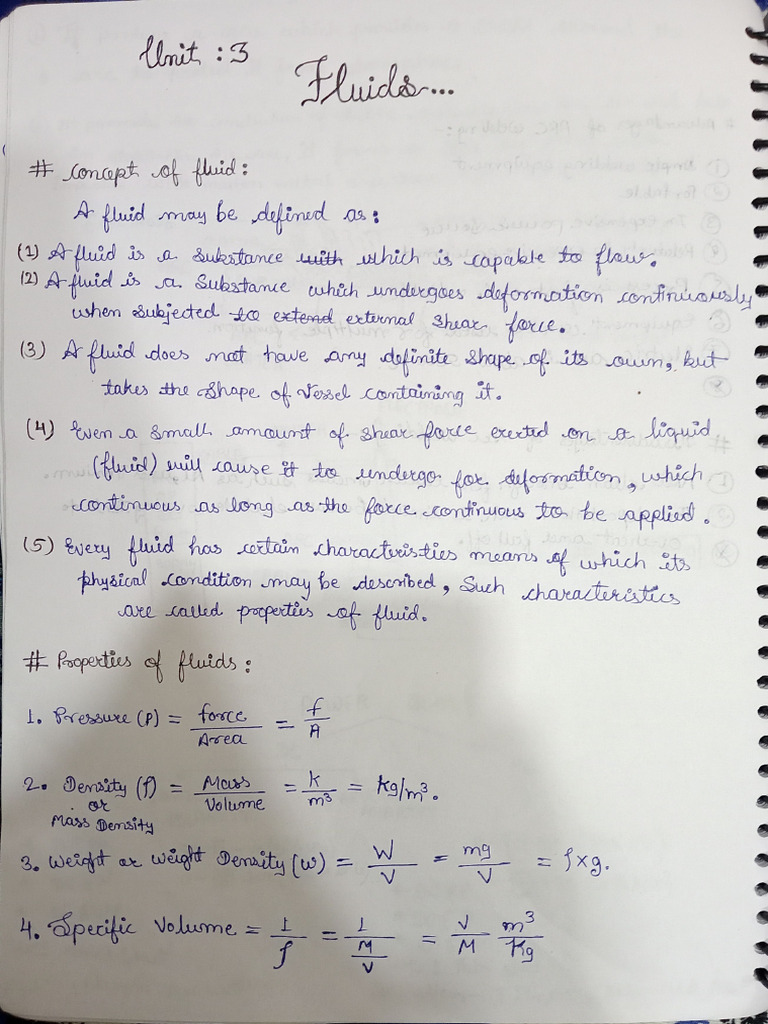 Unit : 3
Fluids...
# Concept of fluid:
A fluid may be defined as:
(1) A fluid is a substance with which is capable to flow.
(2) A fluid is a substance which undergoes deformation continuously
when subjected to extend external shear force.
(3) A fluid does not have any definite shape of its own, but
takes the shape of vessel containing it.
(4) Even a small amount of shear force exerted on a liquid
(fluid) will cause it to undergo for deformation, which
continuous as long as the force continuous to be applied.
(5) Every fluid has certain characteristics means of which its
physical condition may be described, Such characteristics
are called properties of fluid.
# Properties of fluids:
1. Pressure (P) = force/Area = f/A
2. Density (ρ) = Mass/Volume = k/m³ = kg/m³.
or
Mass Density
3. Weight or weight Density (w) = W/V = mg/V = ρ×g.
4. Specific Volume = 1/ρ = 1/(M/V) = V/M m³/kg